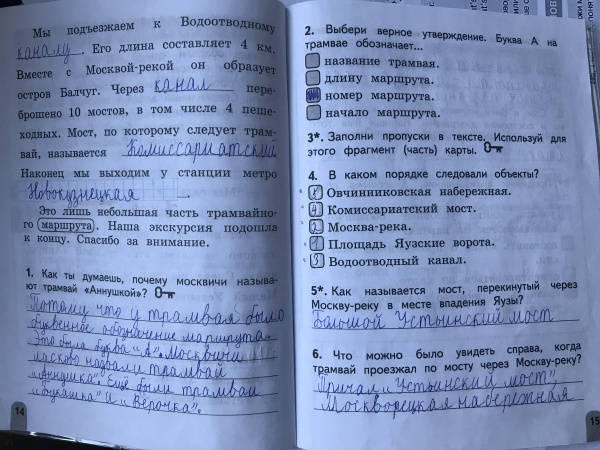 Мы подъезжаем к Водоотводному
каналу. Его длина составляет 4 км.
Вместе с Москвой-рекой он образует
остров Балчуг. Через канал пере-
брошено 10 мостов, в том числе 4 пеше-
ходных. Мост, по которому следует трам-
вай, называется Комиссариатский
Наконец мы выходим у станции метро
Новокузнецкая.
Это лишь небольшая часть трамвайно-
го маршрута. Наша экскурсия подошла
к концу. Спасибо за внимание.
1. Как ты думаешь, почему москвичи называ-
ют трамвай «Аннушкой»?
Потому что у трамвая было
буквенное обозначение маршрута.
Это была буква "А". Москвичи
ласково назвали трамвай
"Аннушка". Ещё были трамваи
"Букашка" и "Верочка".
14
2. Выбери верное утверждение. Буква А на
трамвае обозначает...
название трамвая.
длину маршрута.
номер маршрута.
начало маршрута.
3*. Заполни пропуски в тексте. Используй для
этого фрагмент (часть) карты.
4. В каком порядке следовали объекты?
Овчинниковская набережная.
4 Комиссариатский мост.
2 Москва-река.
1 Площадь Яузские ворота.
3 Водоотводный канал.
5*. Как называется мост, перекинутый через
Москву-реку в месте впадения Яузы?
Большой Устьинский мост
6. Что можно было увидеть справа, когда
трамвай проезжал по мосту через Москву-реку?
Причал "Устьинский мост",
Москворецкая набережная
15